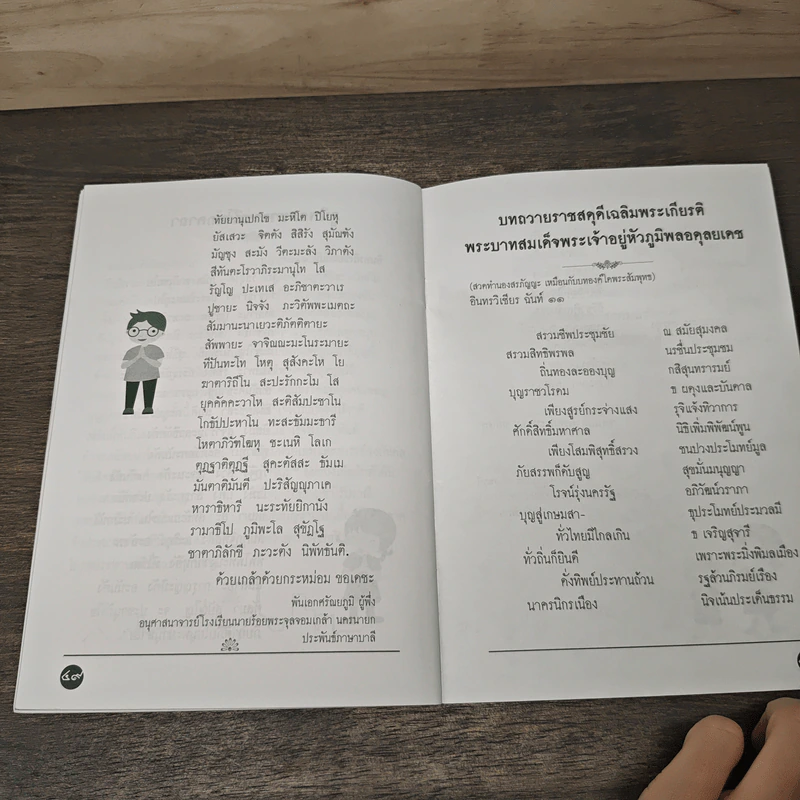 ทัยยานุเปกโข มะหีโต ปิโยหุ
ยัสเสวะ จิตตัง สิสิรัง สุมัณฑัง
มัญชุง สะมัง วีตะมะลัง วิภาตัง
สีทันตะโรวาภิระมานุโท โส
รัญโญ ปะเทเส อะภิชาตะวาเร
ปูชายะ นิจจัง ภะวิตัพพะเมตถะ
สัมมานะนาเยวะติภัตติตายะ
สัพพายะ จาจิณณะมะโนระมายะ
ทีปินทะโท โหตุ สุสังคะโห โย
ฆาตาริถีโน สะปะรักกะโม โส
ยุคคัคคะวาโห สะติสัมปะชาโน
โกธัปปะหาโน ทะสะธัมมะชารี
โหตาภิวัฑโฒหุ ชะเนหิ โลเก
ตุฏฐาติตุฏฐี สุคะตัสสะ ธัมเม
มันตาติมันตี ปะริสัญญุภาเค
หาราธิหารี นะระทัยยิกานัง
รามาธิโป ภูมิพะโล สุชัฏโฐ
ชาตาภิลักขี ภะวะตัง นิพัทธันติ.
ด้วยเกล้าด้วยกระหม่อม ขอเดชะ
พันเอกศรัณยภูมิ ผู้พึ่ง
อนุศาสนาจารย์โรงเรียนนายร้อยพระจุลจอมเกล้า นครนายก
ประพันธ์ภาษาบาลี
๔๙
บทถวายราชสดุดีเฉลิมพระเกียรติ
พระบาทสมเด็จพระเจ้าอยู่หัวภูมิพลอดุลยเดช
(สวดทำนองสรภัญญะ เหมือนกับบทองค์ใดพระสัมพุทธ)
อินทรวิเชียร ฉันท์ ๑๑
สรวมชีพประชุมชัย ณ สมัยสุมงคล
สรวมสิทธิพรพล นรชื่นประชุมชม
ถิ่นทองละอองบุญ กสิสุนทรารมย์
บุญราชวโรดม ธ ผดุงและบันดาล
เพียงสูรย์กระจ่างแสง รุจิแจ้งทิวาการ
ศักดิ์สิทธิ์มหาศาล นิธิเพิ่มพิพัฒน์พูน
เพียงโสมพิสุทธิ์สรวง ชนปวงประโมทย์มูล
ภัยสรรพก็ดับสูญ สุขมั่นมนุญญา
โรจน์รุ่งนครรัฐ อภิวัฒน์วราภา
บุญสู่เกษมสา- ธุประโมทย์ประมวลมี
ทั่วไทยมิไกลเกิน ธ เจริญสุจารี
ทั่วถิ่นก็ยินดี เพราะพระมิ่งพิมลเมือง
คั่งทิพย์ประทานถ้วน รฐล้วนภิรมย์เรือง
นาครนิกรเนือง นิจเน้นประเด็นธรรม